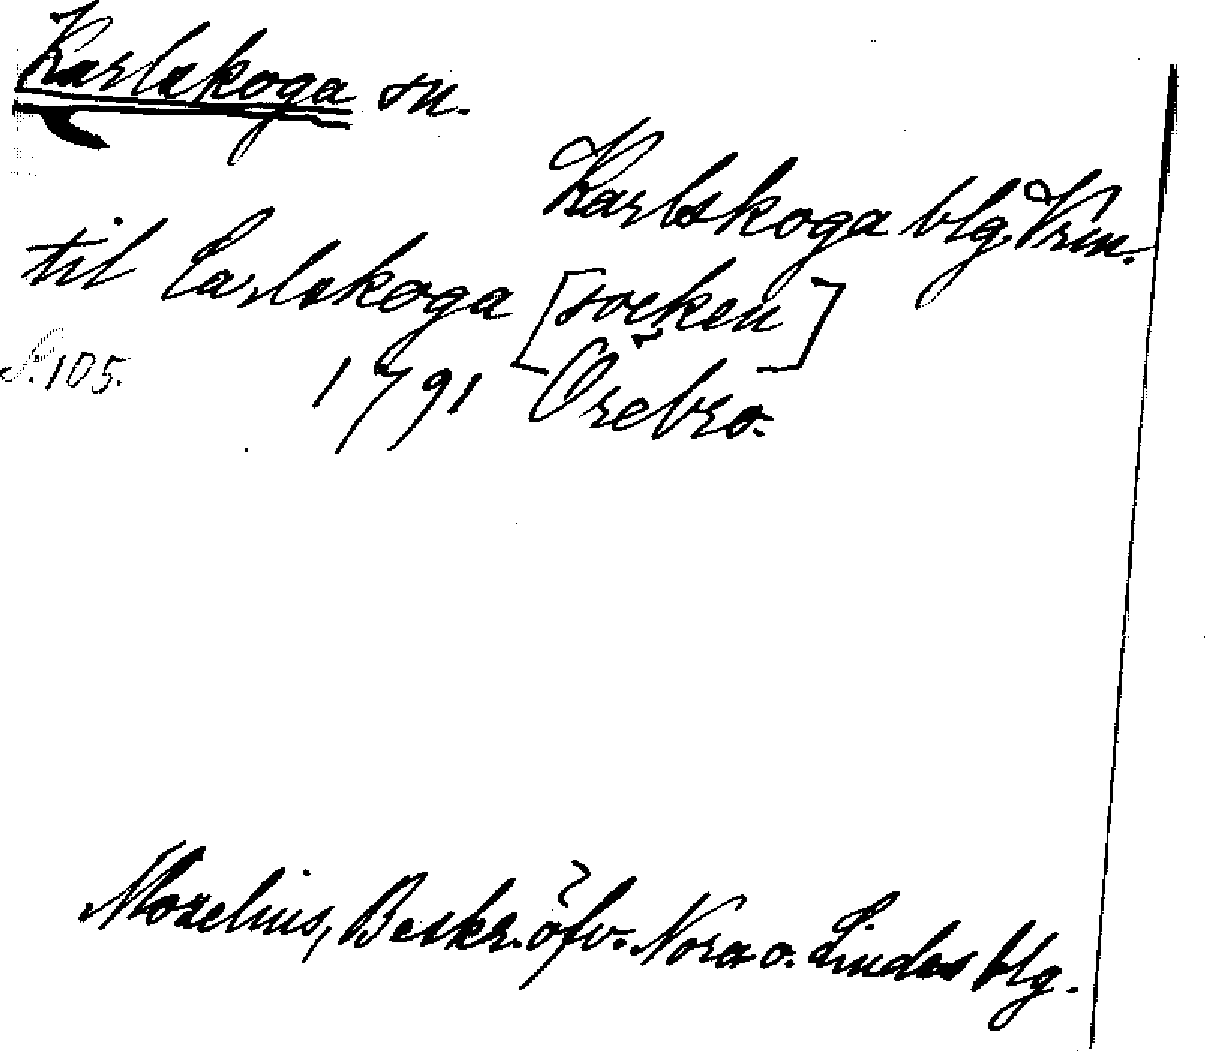 Karlskoga sn.
Karlskoga blg. Vrm.
til Carlskoga [socken]
S. 105. 1791 Örebro.
Moxelius, Beskr. öfv. Nora o. Lindes blg.